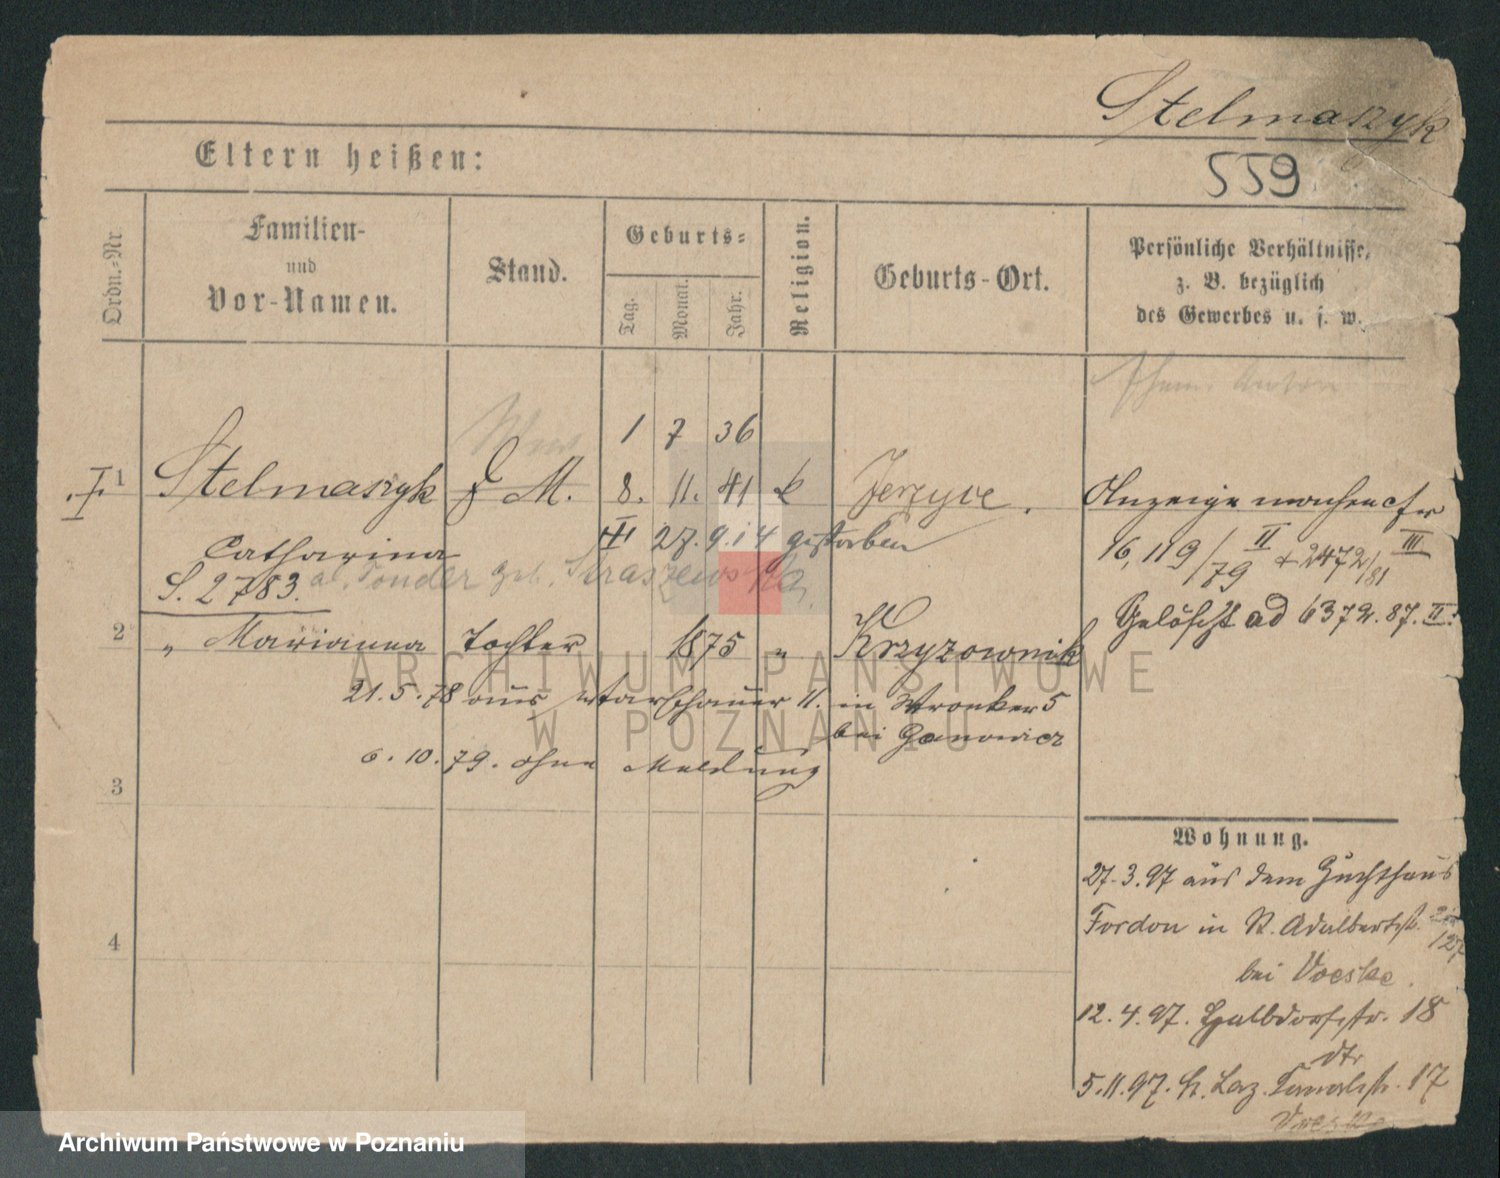 Stelmaszyk
559
Eltern heißen:
Ordn.-Nr.
Familien-
und
Vor-Namen.
Stand.
Geburts-
Tag.
Monat.
Jahr.
Religion.
Geburts-Ort.
Persönliche Verhältnisse,
z. B. bezüglich
des Gewerbes u. s. w.
Anton
1 7 36
I. 1 Stelmaszyk M. 8. 11. 41 k Jerzyce. Anzeige machen cfr
Catharina 27. 9. 14 gestorben 16,119/79 II + 2472/81 III
S. 2783. geb. Straszewska
Gelöscht ad 6372. 87. II.
2 " Marianna Tochter 1875 " Krzyzownik
21. 5. 78 aus Warschauer 11. in Wronker 5
bei Ganowicz
6. 10. 79. ohne Meldung
3
4
Wohnung.
27.3.97 aus dem Zuchthaus
Fordon in St. Adalbertst.
bei Voeske
12. 4. 97. Halbdorfstr. 18
5.11.97. St. Laz. Kanalstr. 17
Voeske
ARCHIWUM PAŃSTWOWE
W POZNANIU
Archiwum Państwowe w Poznaniu